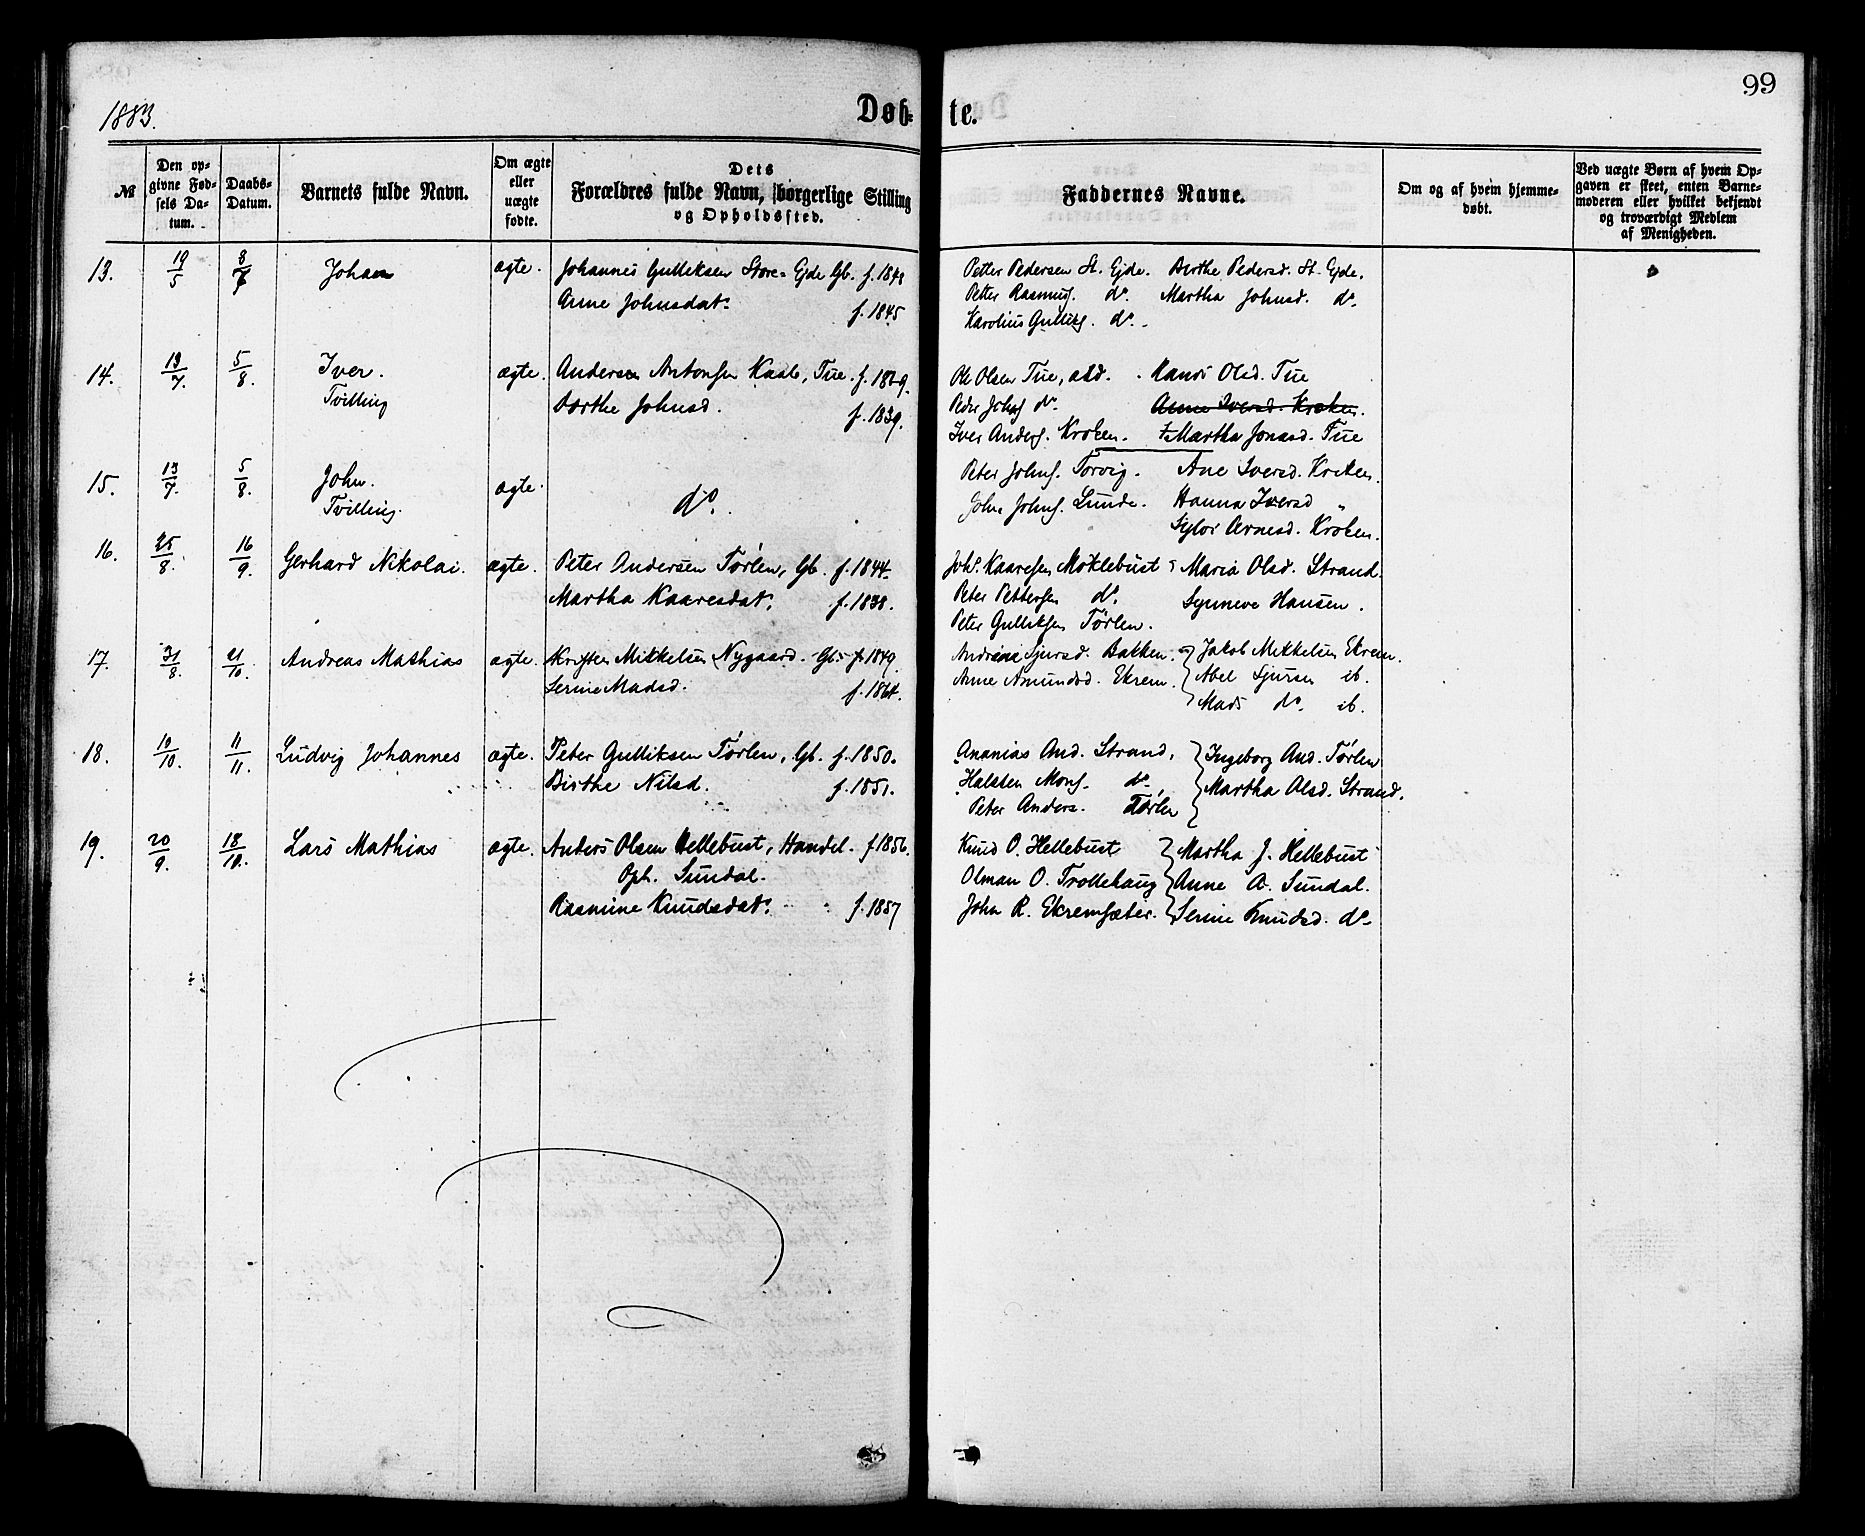 99
1883.
Døb- te.
№
Den opgivne Fødsels Datum.
Daabs-Datum.
Barnets fulde Navn.
Om ægte eller uægte fødte.
Dets Forældres fulde Navn, borgerlige Stilling og Opholdssted.
Faddernes Navne.
Om og af hvem hjemmedøbt.
Ved uægte Børn af hvem Opgaven er skeet, enten Barnemoderen eller hvilket bekjendt og troværdigt Medlem af Menigheden.
13. 19/5 8/7 Johan ægte. Johannes Gulliksen Store-Ejde Gb. f. 1848 Petter Pedersen St. Ejde. Berthe Pedersd. St. Ejde.
Anne Johnsdatr. f. 1845 Petter Rasmus. do. Martha Johnsd. do.
Karolius Gulliks. do.
14. 19/7. 5/8. Iver. ægte. Anders Antonsen Tue. f. 1849. Ole Olsen Tue, Mands Olsd. Tue
Tvilling Dorthe Johnsd. f. 1839. Peder do. Anne Iversd. Kroken.
Iver Anders. Kroken. Martha Jonasd. Tue
15. 19/7. 5/8. John. ægte. do. Peter Johns. Torvig. Ane Iversd. Kroken.
Tvilling. John Johns. Lunde. Hanna Iversd "
Arnesd. Kroken.
16. 25/8. 16/9. Gerhard Nikolai. ægte. Peter Andersen Tørlen, Gb. f. 1844. Johs. Kaaresen Møklebust Maria Olsd. Strand.
Martha Kaaresdatr. f. 1838. Peter Pettersen do. Synneve Hansen.
Peter Gulliksen Tørlen.
17. 31/8. 21/10. Andreas Mathias ægte. Kristen Mikkelsen Nygaard. Gb. f. 1849. Andrine Sjursd. Bakken. Jakob Mikkelsen Ekrem.
Serine Madsd. f. 1864. Anne Amundsd. Ekrem. Abel Sjursen ib.
Mads do. ib.
18. 19/10. 11/11. Ludvig Johannes ægte. Peter Gulliksen Tørlen, Gb. f. 1850. Ananias And. Strand, Ingeborg And. Tørlen
Birthe Nilsd. f. 1851. Halsten Mons. do. Martha Olsd. Strand.
Peter Anders. Tørlen
19. 20/9. 18/10. Lars Mathias ægte. Anders Olsen Hellebust, Handel. f 1856. Knud O. Hellebust Martha J. Hellebust
Oph. Sundal. Olman O. Trollehaug Anne A. Sundal.
Rasmine Knudsdatr. f. 1857 John R. Ekremsæter. Serine Knudsd. do.